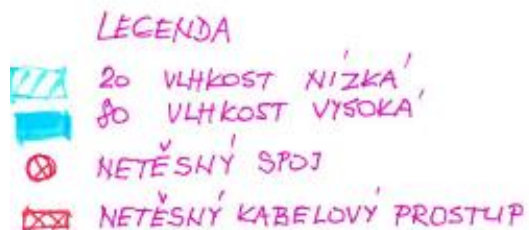 LEGENDA
20 VLHKOST NÍZKÁ
80 VLHKOST VYSOKÁ
NETĚSNÝ SPOJ
NETĚSNÝ KABELOVÝ PROSTUP